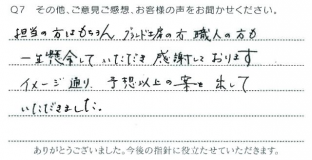 Q7 その他、ご意見ご感想、お客様の声をお聞かせください。
担当の方はもちろん ブランド工房の方 職人の方も
一生懸命していただき 感謝しております
イメージ通り 予想以上の案を出して
いただきました。
ありがとうございました。今後の指針に役立たせていただきます。